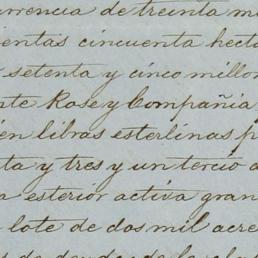 currencia de treinta m
ientas cincuenta hect
setenta y cinco millon
nte Rose y Compañia
en libras esterlinas p
ta y tres y un tercio
a exterior activa gran
lote de dos mil acre